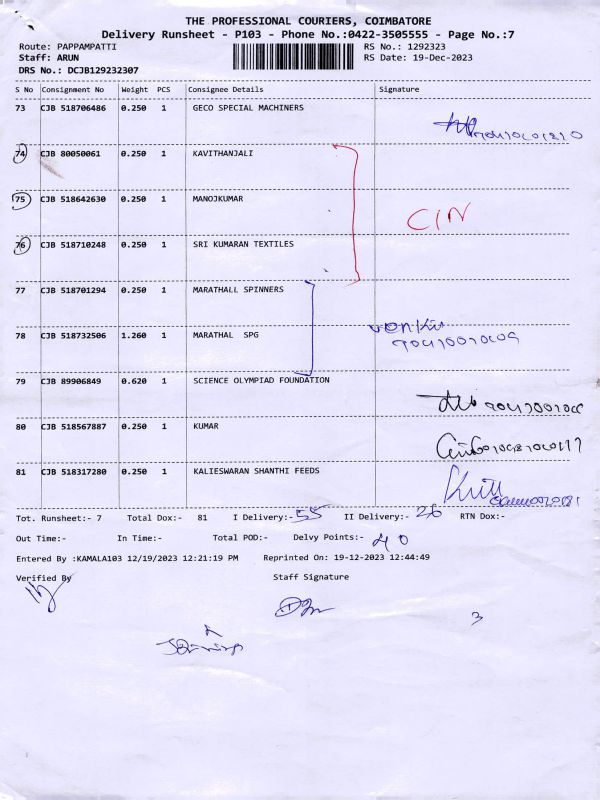 THE PROFESSIONAL COURIERS, COIMBATORE
Delivery Runsheet - P103 - Phone No.:0422-3505555 - Page No.:7
Route: PAPPAMPATTI RS No.: 1292323
Staff: ARUN RS Date: 19-Dec-2023
DRS No.: DCJB129232307
S No Consignment No Weight PCS Consignee Details Signature
73 CJB 518706486 0.250 1 GECO SPECIAL MACHINERS
74 CJB 80050061 0.250 1 KAVITHANJALI
75 CJB 518642630 0.250 1 MANOJKUMAR
CIN
76 CJB 518710248 0.250 1 SRI KUMARAN TEXTILES
77 CJB 518701294 0.250 1 MARATHALL SPINNERS
78 CJB 518732506 1.260 1 MARATHAL SPG
79 CJB 89906849 0.620 1 SCIENCE OLYMPIAD FOUNDATION
80 CJB 518567887 0.250 1 KUMAR
81 CJB 518317280 0.250 1 KALIESWARAN SHANTHI FEEDS
Tot. Runsheet:- 7 Total Dox:- 81 I Delivery:- 55 II Delivery:- 26 RTN Dox:-
Out Time:- In Time:- Total POD:- Delvy Points:- 40
Entered By :KAMALA103 12/19/2023 12:21:19 PM Reprinted On: 19-12-2023 12:44:49
Verified By Staff Signature
3